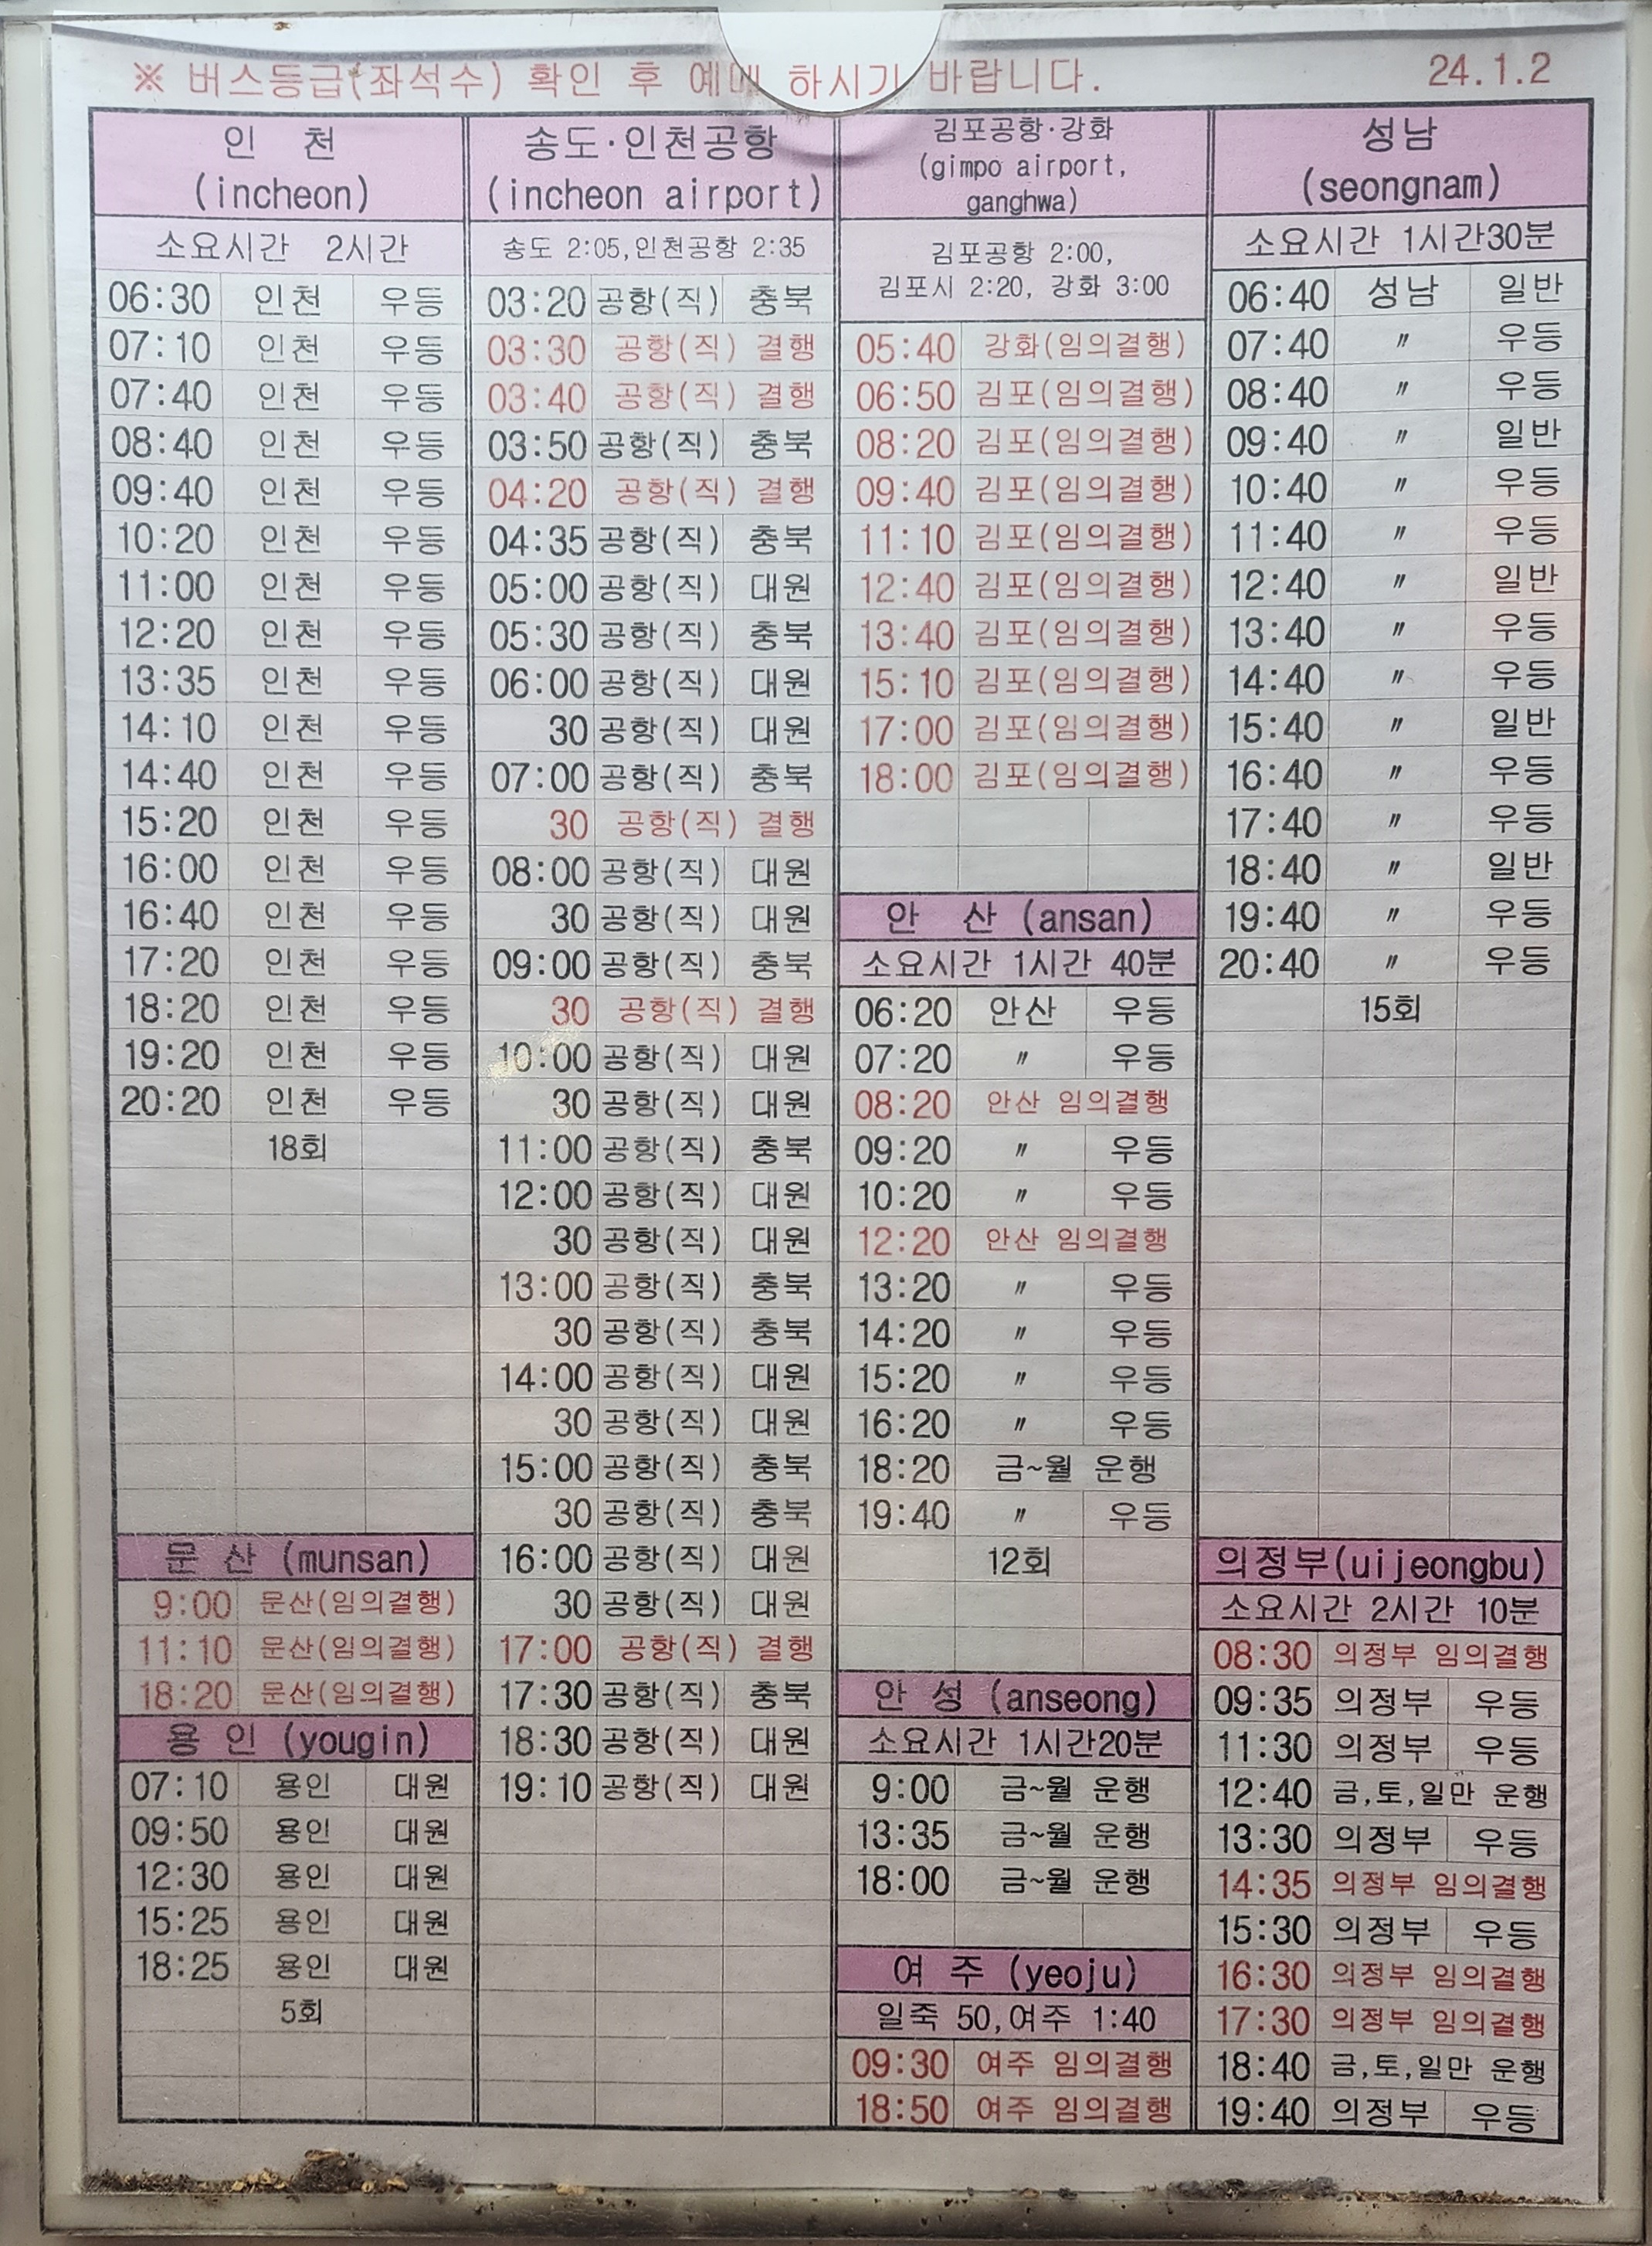 ※ 버스등급(좌석수) 확인 후 예매 하시기 바랍니다.
24.1.2
인 천
(incheon)
소요시간 2시간
06:30 인천 우등
07:10 인천 우등
07:40 인천 우등
08:40 인천 우등
09:40 인천 우등
10:20 인천 우등
11:00 인천 우등
12:20 인천 우등
13:35 인천 우등
14:10 인천 우등
14:40 인천 우등
15:20 인천 우등
16:00 인천 우등
16:40 인천 우등
17:20 인천 우등
18:20 인천 우등
19:20 인천 우등
20:20 인천 우등
18회
문 산 (munsan)
9:00 문산(임의결행)
11:10 문산(임의결행)
18:20 문산(임의결행)
용 인 (yougin)
07:10 용인 대원
09:50 용인 대원
12:30 용인 대원
15:25 용인 대원
18:25 용인 대원
5회
송도·인천공항
(incheon airport)
송도 2:05,인천공항 2:35
03:20 공항(직) 충북
03:30 공항(직) 결행
03:40 공항(직) 결행
03:50 공항(직) 충북
04:20 공항(직) 결행
04:35 공항(직) 충북
05:00 공항(직) 대원
05:30 공항(직) 충북
06:00 공항(직) 대원
30 공항(직) 대원
07:00 공항(직) 충북
30 공항(직) 결행
08:00 공항(직) 대원
30 공항(직) 대원
09:00 공항(직) 충북
30 공항(직) 결행
10:00 공항(직) 대원
30 공항(직) 대원
11:00 공항(직) 충북
12:00 공항(직) 대원
30 공항(직) 대원
13:00 공항(직) 충북
30 공항(직) 충북
14:00 공항(직) 대원
30 공항(직) 대원
15:00 공항(직) 충북
30 공항(직) 충북
16:00 공항(직) 대원
30 공항(직) 대원
17:00 공항(직) 결행
17:30 공항(직) 충북
18:30 공항(직) 대원
19:10 공항(직) 대원
김포공항·강화
(gimpo airport,
ganghwa)
김포공항 2:00,
김포시 2:20, 강화 3:00
05:40 강화(임의결행)
06:50 김포(임의결행)
08:20 김포(임의결행)
09:40 김포(임의결행)
11:10 김포(임의결행)
12:40 김포(임의결행)
13:40 김포(임의결행)
15:10 김포(임의결행)
17:00 김포(임의결행)
18:00 김포(임의결행)
안 산 (ansan)
소요시간 1시간 40분
06:20 안산 우등
07:20 〃 우등
08:20 안산 임의결행
09:20 〃 우등
10:20 〃 우등
12:20 안산 임의결행
13:20 〃 우등
14:20 〃 우등
15:20 〃 우등
16:20 〃 우등
18:20 금~월 운행
19:40 〃 우등
12회
안 성 (anseong)
소요시간 1시간20분
9:00 금~월 운행
13:35 금~월 운행
18:00 금~월 운행
여 주 (yeoju)
일죽 50,여주 1:40
09:30 여주 임의결행
18:50 여주 임의결행
성남
(seongnam)
소요시간 1시간30분
06:40 성남 일반
07:40 〃 우등
08:40 〃 우등
09:40 〃 일반
10:40 〃 우등
11:40 〃 우등
12:40 〃 일반
13:40 〃 우등
14:40 〃 우등
15:40 〃 일반
16:40 〃 우등
17:40 〃 우등
18:40 〃 일반
19:40 〃 우등
20:40 〃 우등
15회
의정부(uijeongbu)
소요시간 2시간 10분
08:30 의정부 임의결행
09:35 의정부 우등
11:30 의정부 우등
12:40 금,토,일만 운행
13:30 의정부 우등
14:35 의정부 임의결행
15:30 의정부 우등
16:30 의정부 임의결행
17:30 의정부 임의결행
18:40 금,토,일만 운행
19:40 의정부 우등